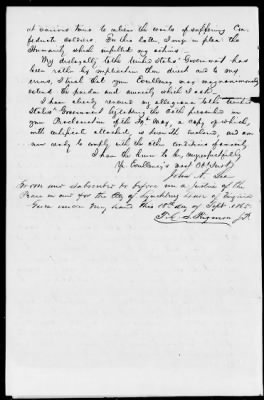 at various times to relieve the wants of suffering Con
federate soldiers. For this latter, I may in plea the
Humanity which impelled my actions —
My disloyalty to the United States' Government has
been rather by implication than direct and to my
errors, I trust that your Excellency may magnanimously
extend the pardon and amnesty which I ask —
I have already renewed my allegiance to the United
States' Government by taking the Oath prescribed in
your Proclamation of the 29th May, a copy of which,
with certificate attached, is herewith enclosed, and am
now ready to comply with the other conditions of amnesty
I have the honor to be, very respectfully
Yr Excellency's most Obt Servt,
John A. Lee
Sworn and subscribed to before me a Justice of the
Peace in and for the City of Lynchburg State of Virginia
Given under my hand this 18th day of Sept. 1865.
J.P.